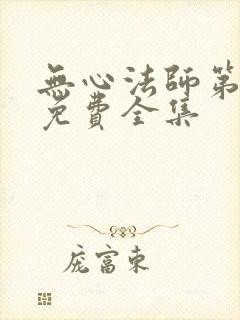 無心法師第
免費全集
庞富東